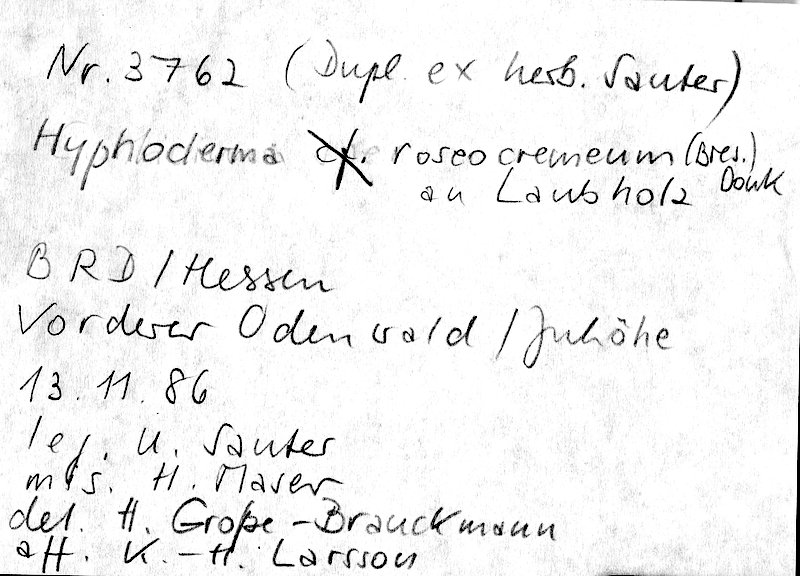 Nr. 3762 (Dupl. ex herb. Sauter)
Hyphoderma cf. roseocremeum (Bres.) Donk
an Laubholz
BRD / Hessen
Vorderer Odenwald / Juhöhe
13.11.86
leg. U. Sauter
mis. H. Maser
det. H. Große-Brauckmann
aff. K.-H. Larsson